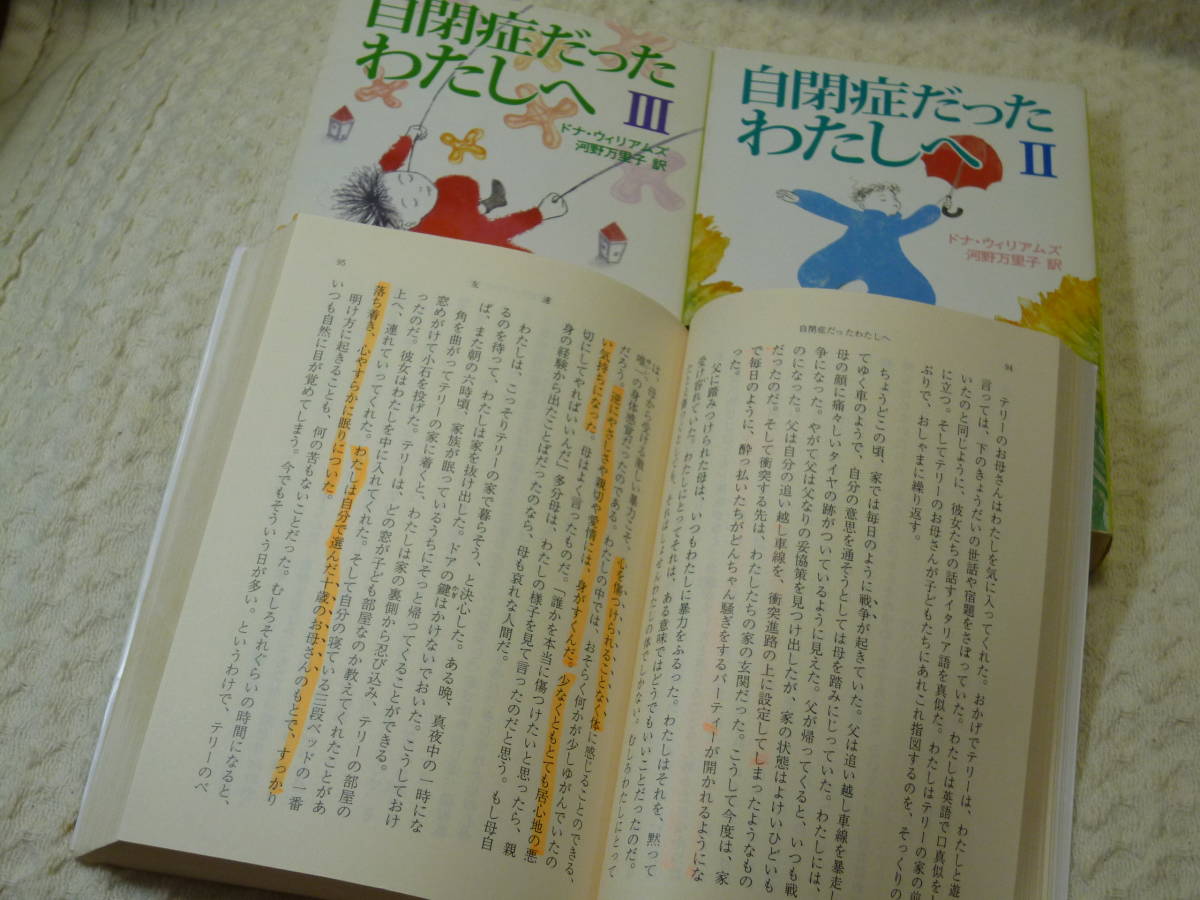 自閉症だった
わたしへ Ⅲ
ドナ・ウィリアムズ
河野万里子 訳
自閉症だった
わたしへ Ⅱ
ドナ・ウィリアムズ
河野万里子 訳
自閉症だったわたしへ
94
テリーのお母さんはわたしを気に入ってくれた。おかげでテリーは、わたしと遊
言っては、下のきょうだいの世話や宿題をさぼっていた。わたしは英語で口真似を
いたのと同じように、彼女たちの話すイタリア語を真似た。わたしはテリーの家の前
に立つ。そしてテリーのお母さんが子どもたちにあれこれ指図するのを、そっくりの
ぶりで、おしゃまに繰り返す。
ちょうどこの頃、家では毎日のように戦争が起きていた。父は追い越し車線を暴走し
てゆく車のようで、自分の意思を通そうとしては母を踏みにじっていた。わたしには、
母の顔に痛々しいタイヤの跡がついているように見えた。父が帰ってくると、いつも戦
争になった。やがて父は父なりの妥協策を見つけ出したが、家の状態はよけいひどいも
のになった。父は自分の追い越し車線を、衝突進路の上に設定してしまったようなもの
だったのだ。そして衝突する先は、わたしたちの家の玄関だった。こうして今度は、家
で毎日のように、酔っ払いたちがどんちゃん騒ぎをするパーティーが開かれるようにな
った。
父に踏みつけられた母は、いつもわたしに暴力をふるった。わたしはそれを、黙って
受け容れていた。わたしにとってそれは、ある意味ではどうでもいいことだったのだ。
95
友達
は、母から受ける激しい暴力こそ、心を傷つけられることなく、体に感じることのできる、
唯一の身体感覚だったのである。わたしの中では、おそらく何かが少しゆがんでいたの
だろう。逆にやさしさや親切や愛情には、身がすくんだ。少なくともとても居心地の悪
い気持ちになった。母はよく言ったものだ。「誰かを本当に傷つけたいと思ったら、親
切にしてやればいいんだ」多分母は、わたしの様子を見て言ったのだと思う。もし母自
身の経験から出たことばだったのなら、母も哀れな人間だ。
わたしは、こっそりテリーの家で暮らそう、と決心した。ある晩、真夜中の一時にな
るのを待って、わたしは家を抜け出した。ドアの鍵はかけないでおいた。こうしておけ
ば、また朝の六時頃、家族が眠っているうちにそっと帰ってくることができる。
角を曲がってテリーの家に着くと、わたしは家の裏側から忍び込み、テリーの部屋の
窓めがけて小石を投げた。テリーは、どの窓が子ども部屋なのか教えてくれたことがあ
ったのだ。彼女はわたしを中に入れてくれた。そして自分の寝ている三段ベッドの一番
上へ、連れていってくれた。わたしは自分で選んだ十歳のお母さんのもとで、すっかり
落ち着き、心やすらかに眠りについた。
明け方に起きることも、何の苦もないことだった。むしろそれぐらいの時間になると、
いつも自然に目が覚めてしまう。今でもそういう日が多い。というわけで、テリーのべ